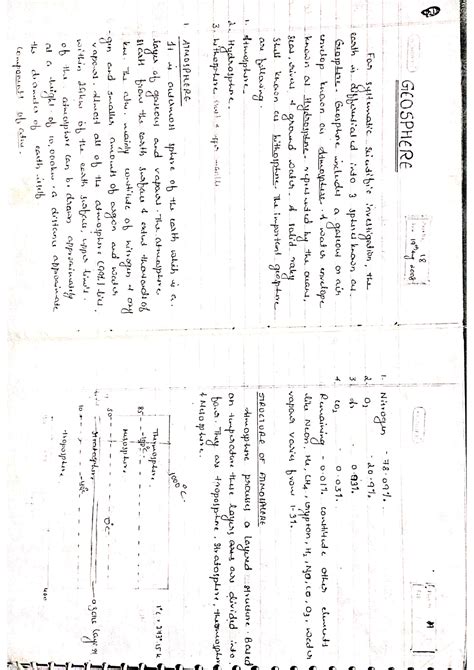 18
GEOSPHERE
For systematic scientific investigation, the
earth is differentiated into 3 spheres known as
Geosphere. Geosphere includes a gaseous or air
envelop known as atmosphere. A water envelope
known as Hydrosphere represented by the oceans,
seas, rivers & ground water. A solid rocky
shell known as Lithosphere. The important geosphere
are following
1. Atmosphere.
2. Hydrosphere.
3. Lithosphere
1. ATMOSPHERE
It is outermost sphere of the earth which is a
layer of gaseous and vapours. The atmosphere
start from the earth surface & extend thousands of
km. The atm. mainly constitute of nitrogen & oxy
-gen and smaller amounts of argon and water
vapour. Almost all of the atmosphere lies
within of the earth surface, upper limit
of the atmosphere can be drawn approximately
at a height of 10,000km. a distance approximate
the diameter of earth itself
Components of atm.
1. Nitrogen - 78.09%
2. O2 - 20.9%
3. Ar - 0.93%
4. CO2 - 0.03%
Remaining - 0.01% constitute other elements
like Neon, He, CH4, Krypton, H2, N2O, CO, O3, water
vapour varies from 1-3%.
STRUCTURE OF ATMOSPHERE
Atmosphere possess a layered structure. Based
on temperature these layers are divided into
four. They are troposphere, stratosphere, thermosphere
& Mesosphere.
1000°C
Thermosphere
85
Mesosphere
50 0°C
Stratosphere ozone layer
10
troposphere